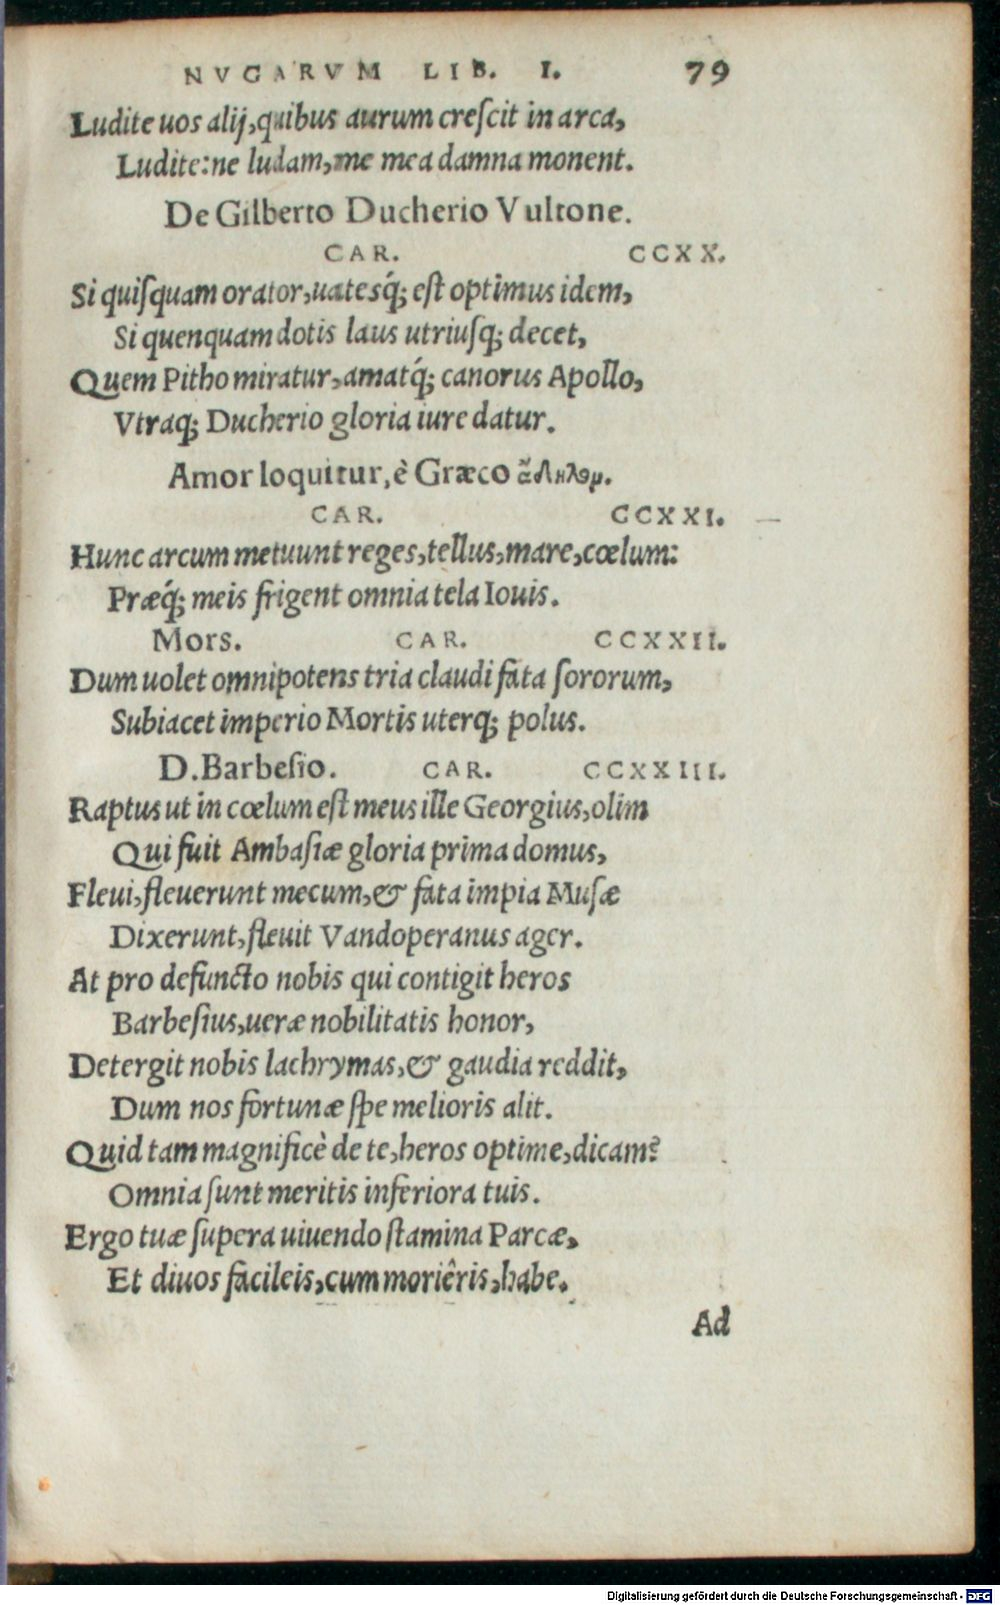 NVGARVM LIB. I. 79
Ludite uos alij, quibus aurum creſcit in arca,
Ludite: ne ludam, me mea damna monent.
De Gilberto Ducherio Vultone.
CAR. CCXX.
Si quiſquam orator, uatesq́; eſt optimus idem,
Si quenquam dotis laus utriuſq; decet,
Quem Pitho miratur, amatq́; canorus Apollo,
Vtraq; Ducherio gloria iure datur.
Amor loquitur, è Græco
CAR. CCXXI.
Hunc arcum metuunt reges, tellus, mare, cœlum:
Præq́; meis frigent omnia tela Iouis.
Mors. CAR. CCXXII.
Dum uolet omnipotens tria claudi fata ſororum,
Subiacet imperio Mortis uterq; polus.
D. Barbeſio. CAR. CCXXIII.
Raptus ut in cœlum eſt meus ille Georgius, olim
Qui fuit Ambaſiæ gloria prima domus,
Fleui, fleuerunt mecum, & fata impia Muſæ
Dixerunt, fleuit Vandoperanus ager.
At pro defuncto nobis qui contigit heros
Barbeſius, ueræ nobilitatis honor,
Detergit nobis lachrymas, & gaudia reddit,
Dum nos fortunæ ſpe melioris alit.
Quid tam magnificè de te, heros optime, dicam?
Omnia ſunt meritis inferiora tuis.
Ergo tuæ ſupera uiuendo ſtamina Parcæ,
Et diuos facileis, cum moriêris, habe.
Ad
Digitalisierung gefördert durch die Deutsche Forschungsgemeinschaft - DFG